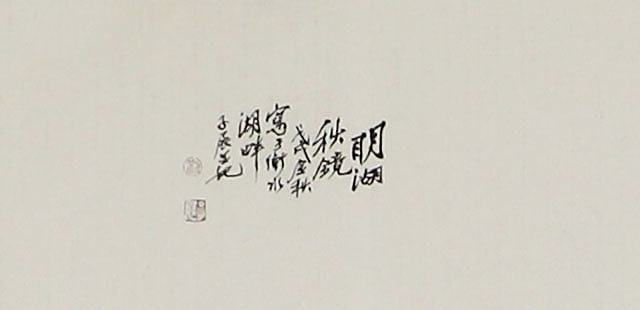 明湖
秋鏡
戊戌金秋
寫于衡水
湖畔
子辰並記